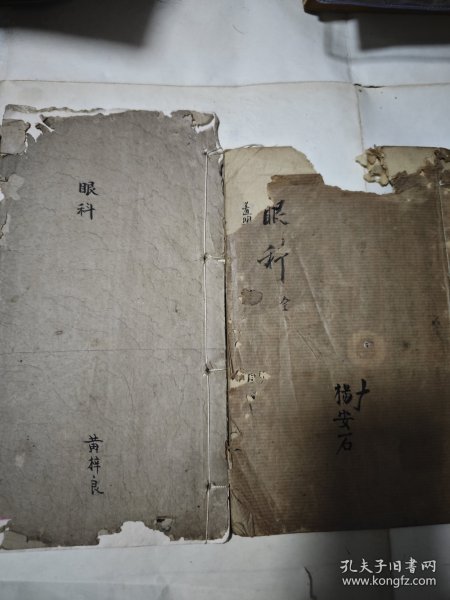 眼科
黄梓良
眼科全
楊安石
孔夫子旧书网
www.kongfz.com